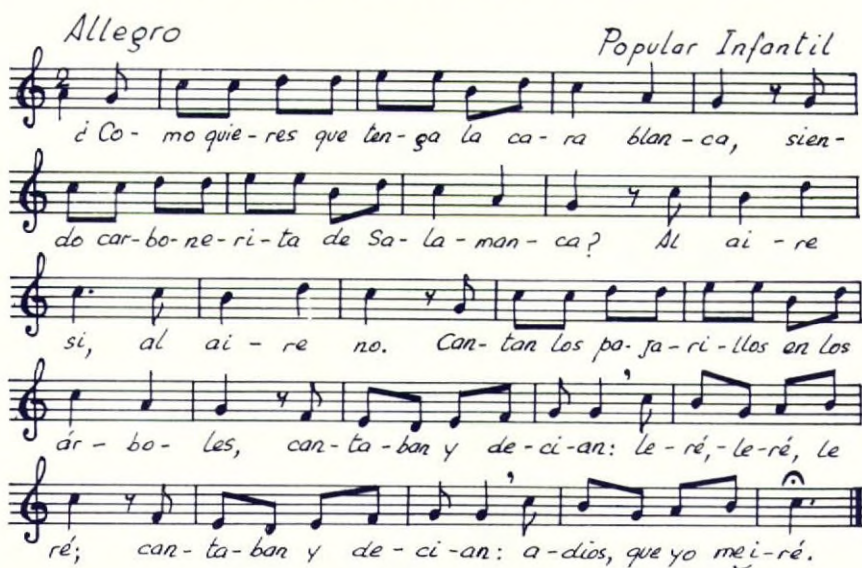 Allegro
Popular Infantil
¿Co- mo quie-res que ten-ga la ca-ra blan-ca, sien-
do car-bo-ne-ri-ta de Sa-la-man-ca? Al ai-re
si, al ai-re no. Can-tan los pa-ja-ri-llos en los
ár-bo-les, can-ta-ban y de-ci-an: le-ré,-le-ré, le
ré; can-ta-ban y de-ci-an: a-dios, que yo me i-ré.